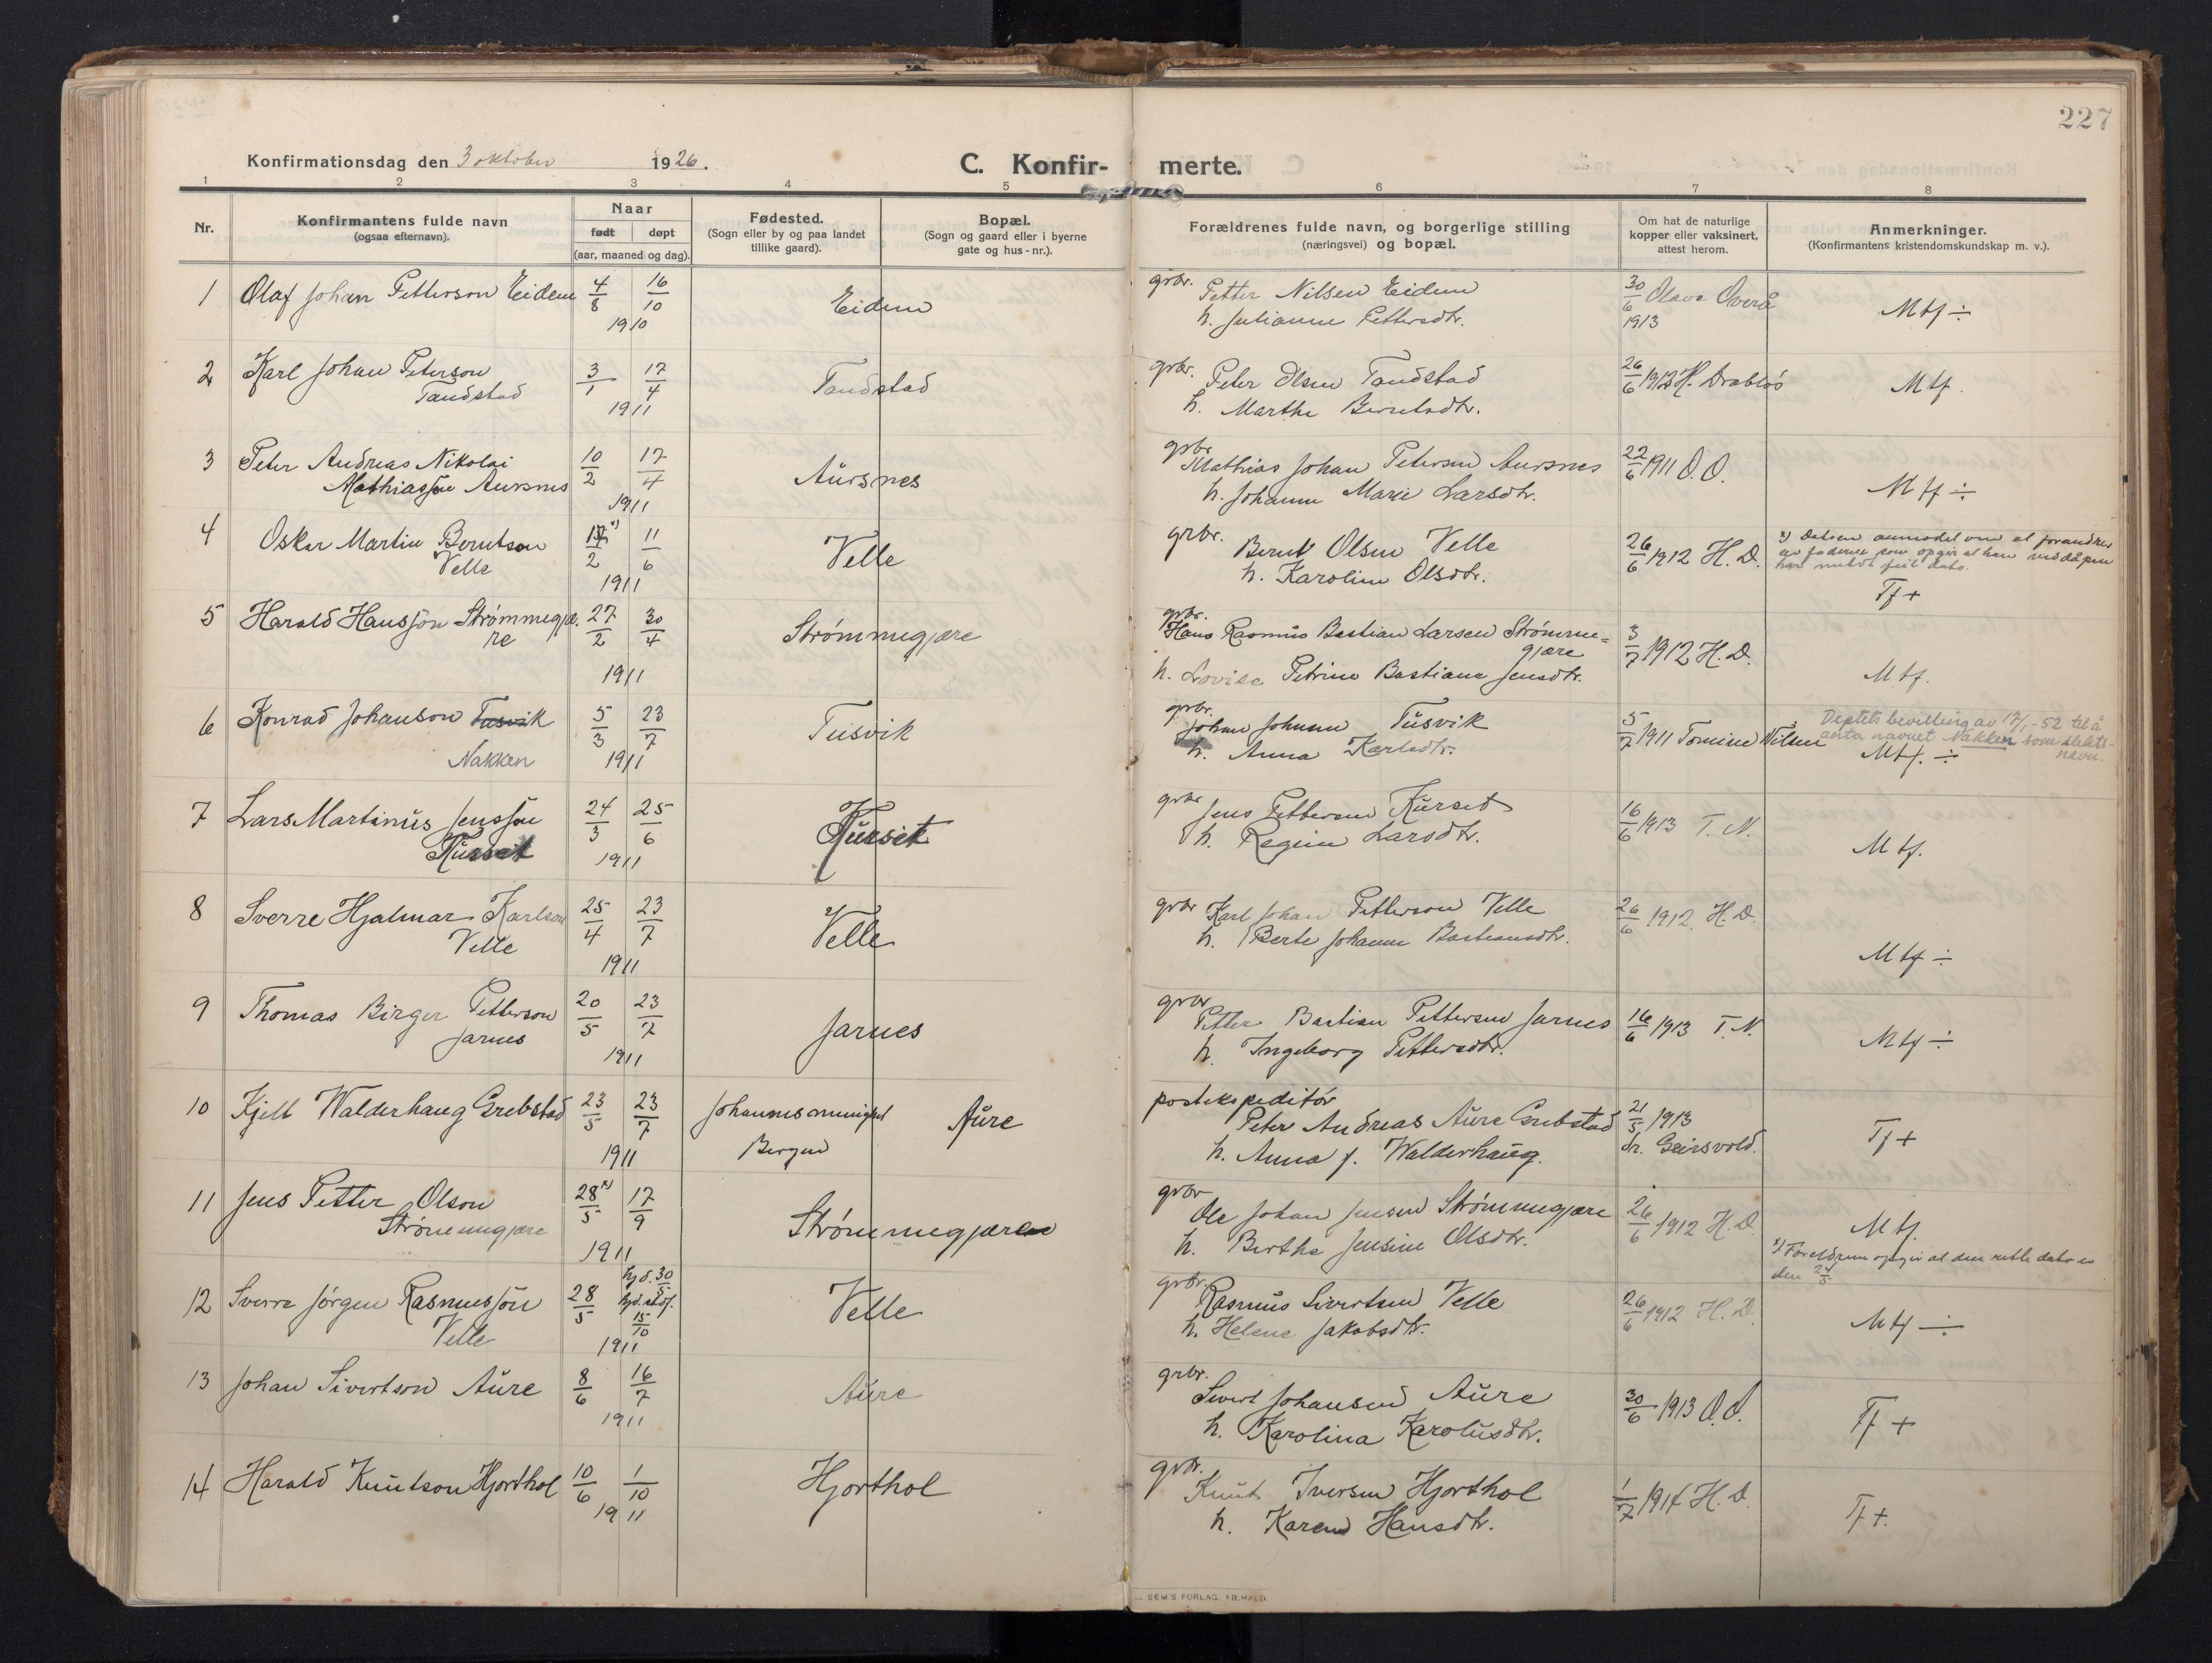 227
Konfirmationsdag den 3 oktober 1926.
C. Konfir- merte.
1 2 3 4 5 6 7 8
Nr.
Konfirmantens fulde navn
(ogsaa efternavn).
Naar
født døpt
(aar, maaned og dag).
Fødested.
(Sogn eller by og paa landet
tillike gaard).
Bopæl.
(Sogn og gaard eller i byerne
gate og hus-nr.).
Forældrenes fulde navn, og borgerlige stilling
(næringsvei) og bopæl.
Om hat de naturlige
kopper eller vaksinert,
attest herom.
Anmerkninger.
(Konfirmantens kristendomskundskap m. v.).
1 Olaf Johan Petterson Eidem 4/8 16/10 1910 Eidem
grbr. Petter Nilsen Eidem
h. Julianne Pettersdtr.
30/6 1913 Olava Overå
Mtf ÷
2 Karl Johan Peterson
Tandstad
3/1 17/4 1911 Tandstad
grbr. Peter Olsen Tandstad
h. Marthe Berntsdtr.
26/6 1912 H. Drabløs
Mtf.
3 Peter Andreas Nikolai
Mathiassøn Aursnes
10/2 17/4 1911 Aursnes
grbr. Mathias Johan Petersen Aursnes
h. Johanne Marie Larsdtr.
22/6 1911 O.O.
Mtf ÷
4 Oskar Martin Berntson
Velle
2 11/6 1911 Velle
grbr. Bernt Olsen Velle
h. Karoline Olsdtr.
26/6 1912 H. D.
x) Datoen anmodet om at forandres
av faderen som opgir at han ved dåpen
har meldt feil dato.
Tf +
5 Harald Hansson Strømmegjæ.
re
27/2 30/4 1911 Strømmegjære
grbr. Hans Rasmus Bastian Larsen Strømme=
gjære
h. Lovise Petrine Bastiane Jensdtr.
3/7 1912 H. D.
Mtf.
6 Konrad Johanson Tusvik
Nakken
5/3 23/7 1911 Tusvik
grbr. Johan Johnsen Tusvik
h. Anna Karlsdtr.
5/7 1911 Tomine Nilsen
Deptets bevilling av 17/1-52 til å
anta navnet Nakken som slekts-
navn.
Mtf. ÷
7 Lars Martinus Jenssøn
Kurset
24/3 25/6 1911 Kurset
grbr Jens Pettersen Kurset
h. Regine Larsdtr.
16/6 1913 T. N.
Mtf.
8 Sverre Hjalmar Karlson
Velle
25/4 23/7 1911 Velle
grbr Karl Johan Petterson Velle
h. Berte Johanne Bastiansdtr.
26/6 1912. H. D.
Mtf ÷
9 Thomas Birger Petterson
Jarnes
20/5 23/7 1911 Jarnes
grbr Petter Bastian Pettersen Jarnes
h. Ingeborg Pettersdtr.
16/6 1913 T. N.
Mtf ÷
10 Kjell Walderhaug Grebstad 23/5 23/7 1911
Johannesmenighet
Bergen
Aure
postekspeditør
Peter Andreas Aure Grebstad
h. Anna f. Walderhaug.
21/5 1913
dr. Geirsvold.
Tf +
11 Jens Petter Olson
Strømmegjære
28 x)/5 17/9 1911 Strømmegjære
grbr Ole Johan Jensen Strømmegjære
h. Berthe Jensine Olsdtr.
26/6 1912 H. D.
Mtf.
x) Foreldrene opgir at den rette dato er
den 24/5
12 Sverre Jørgen Rasmussøn
Velle
28/5 hjd. 30/5
15/10
1911 Velle
grbr. Rasmus Sivertsen Velle
h. Helene Jakobsdtr.
26/6 1912 H. D.
Mtf ÷
13 Johan Sivertson Aure 8/6 16/7 1911 Aure
grbr. Sivert Johansen Aure
h. Karolina Karolusdtr.
30/6 1913 O.O.
Tf +
14 Harald Knutson Hjorthol 10/6 1/10 1911 Hjorthol
grbr. Knut Iversen Hjorthol
h. Karen Hansdtr.
1/7 1914 H. D.
Tf +.
SEM'S FORLAG. FR.HALD.